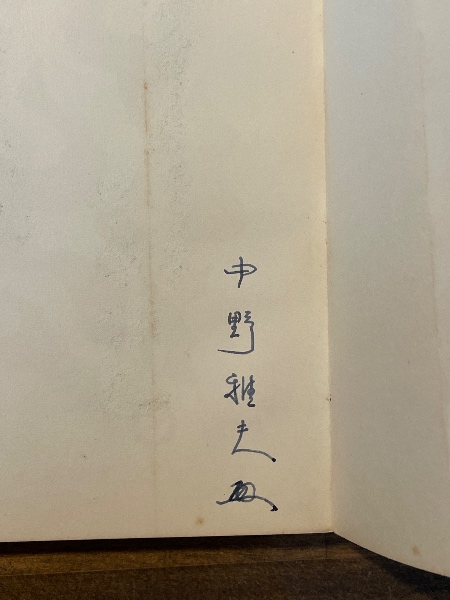 中野雅夫